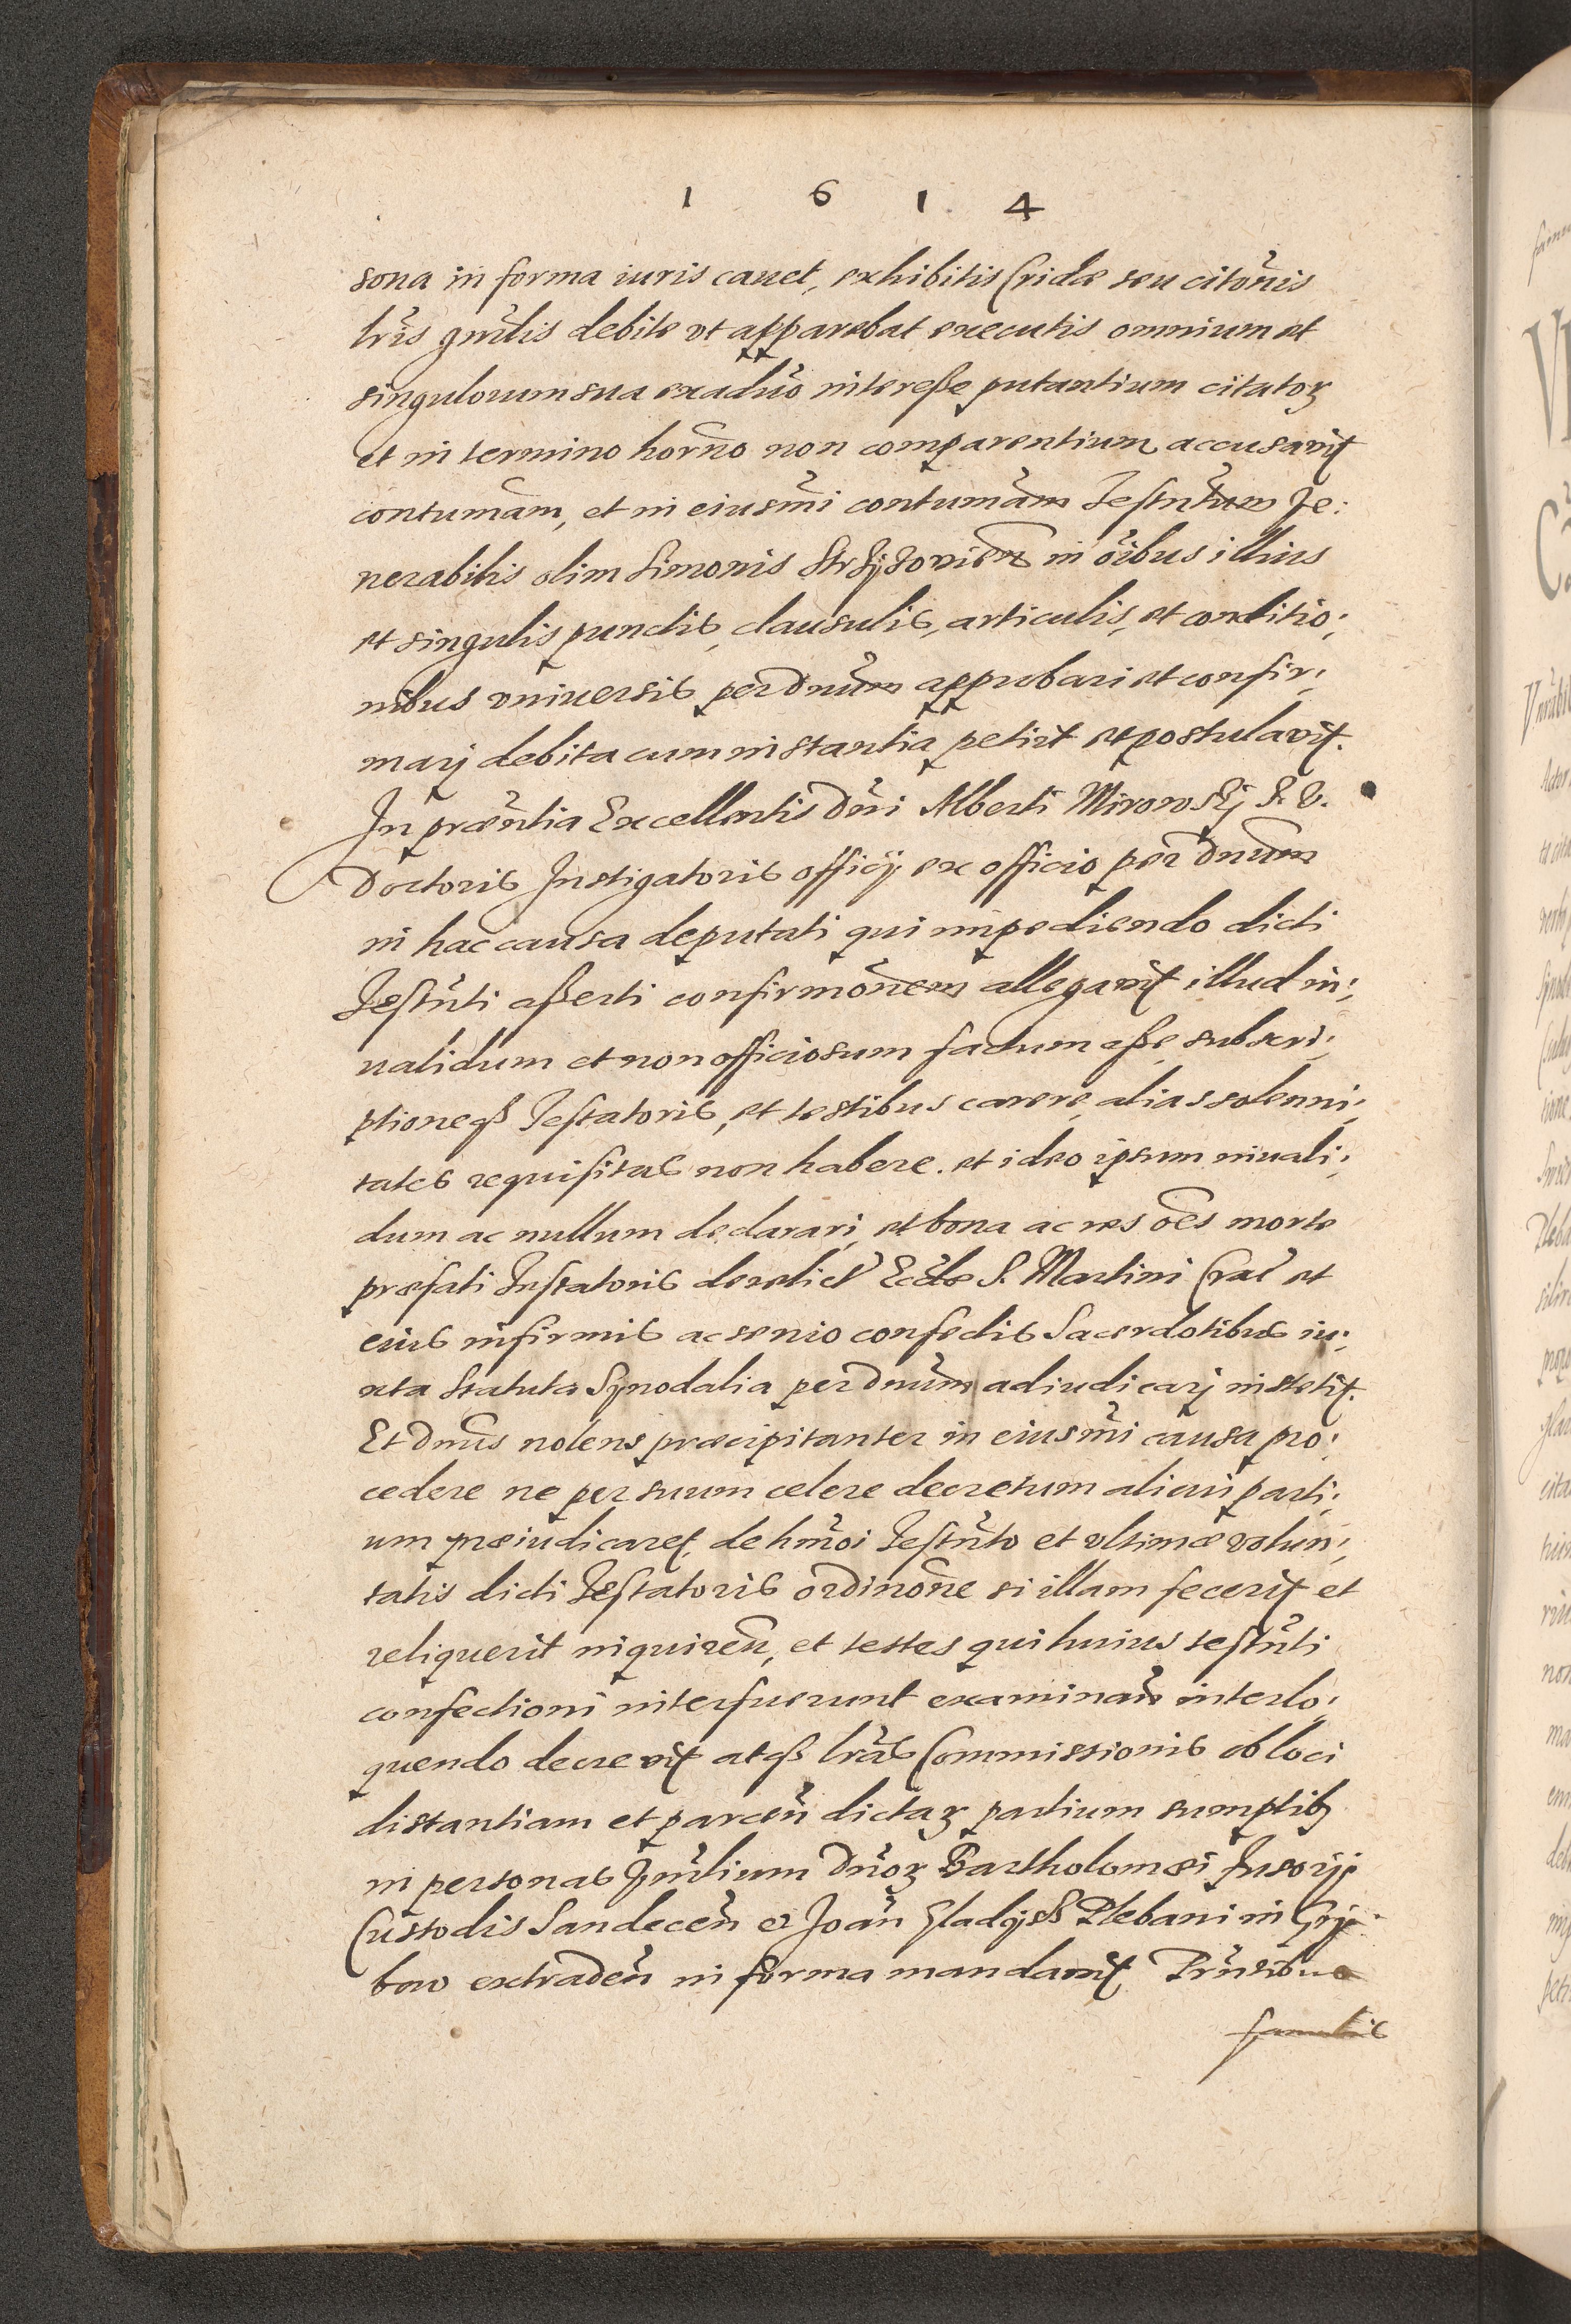 1 6 1 4
sona in forma iuris cauet, exhibitis Cridæ seu citõnis
lr̃is gnr̃lis debite vt apparebat executis omnium et
singulorum sua ex aduõ interesse putantium citatoꝝ
et in termino horño non comparentium accusavit
contumãm, et in eiusm̃i contumãm Testñtum Ve:
nerabilis olim Simonis in õibus illius
et singulis punctis, clausulis, articulis, et conditio:
nibus vniversis per Dnũm approbari et confir:
marj debita cum instantia petijt et postulavit.
In præñtia Excellentis Dñi Alberti Mirowskij S. V.
Doctoris Instigatoris officij ex officio per Dnũm
in hac causa deputati qui impediendo dicti
Testñti asserti confirmõnem allegavit illud in:
ualidum et non officiosum factum esse, subscri:
ptioneqꝫ Testatoris, et testibus carere, alias solenni:
tates requisitas non habere. et ideo ipsum inuali:
dum ac nullum declarari, et bona ac res oẽs morte
præfati Testatoris derelict Eccłæ S. Martini Crac̃ et
eius infirmis ac senio confectis Sacerdotibus iu:
xta Statuta Synodalia per Dnũm adiudicarj institit.
Et Dnũs nolens præcipitanter in eiusm̃i causa pro:
cedere ne per suum celere decretum alicui parti:
um præiudicaret, de hm̃oi Testñto et vltimæ volun:
tatis dicti Testatoris ordinõne si illam fecerit et
reliquerit inquireñ, et testes qui huius testñti
confectioni interfuerunt examinañ interlo:
quendo decrevit atqꝫ lrãs Commissionis ob loci
distantiam et parceñ dictaꝝ partium sumptibꝫ
in personas Vnr̃lium Dnõꝝ Bartholomæi Fusorij
Custodis Sandeceñ et Joañ Gladijsz Plebani in Grij
bow extradeñ in forma mandavit. Prñtibus
famulis